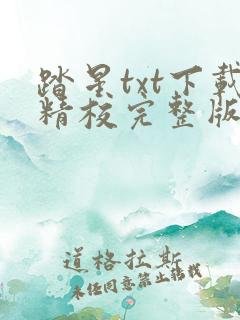 踏星txt下载
精校完整版
道格拉斯
未经同意禁止转载